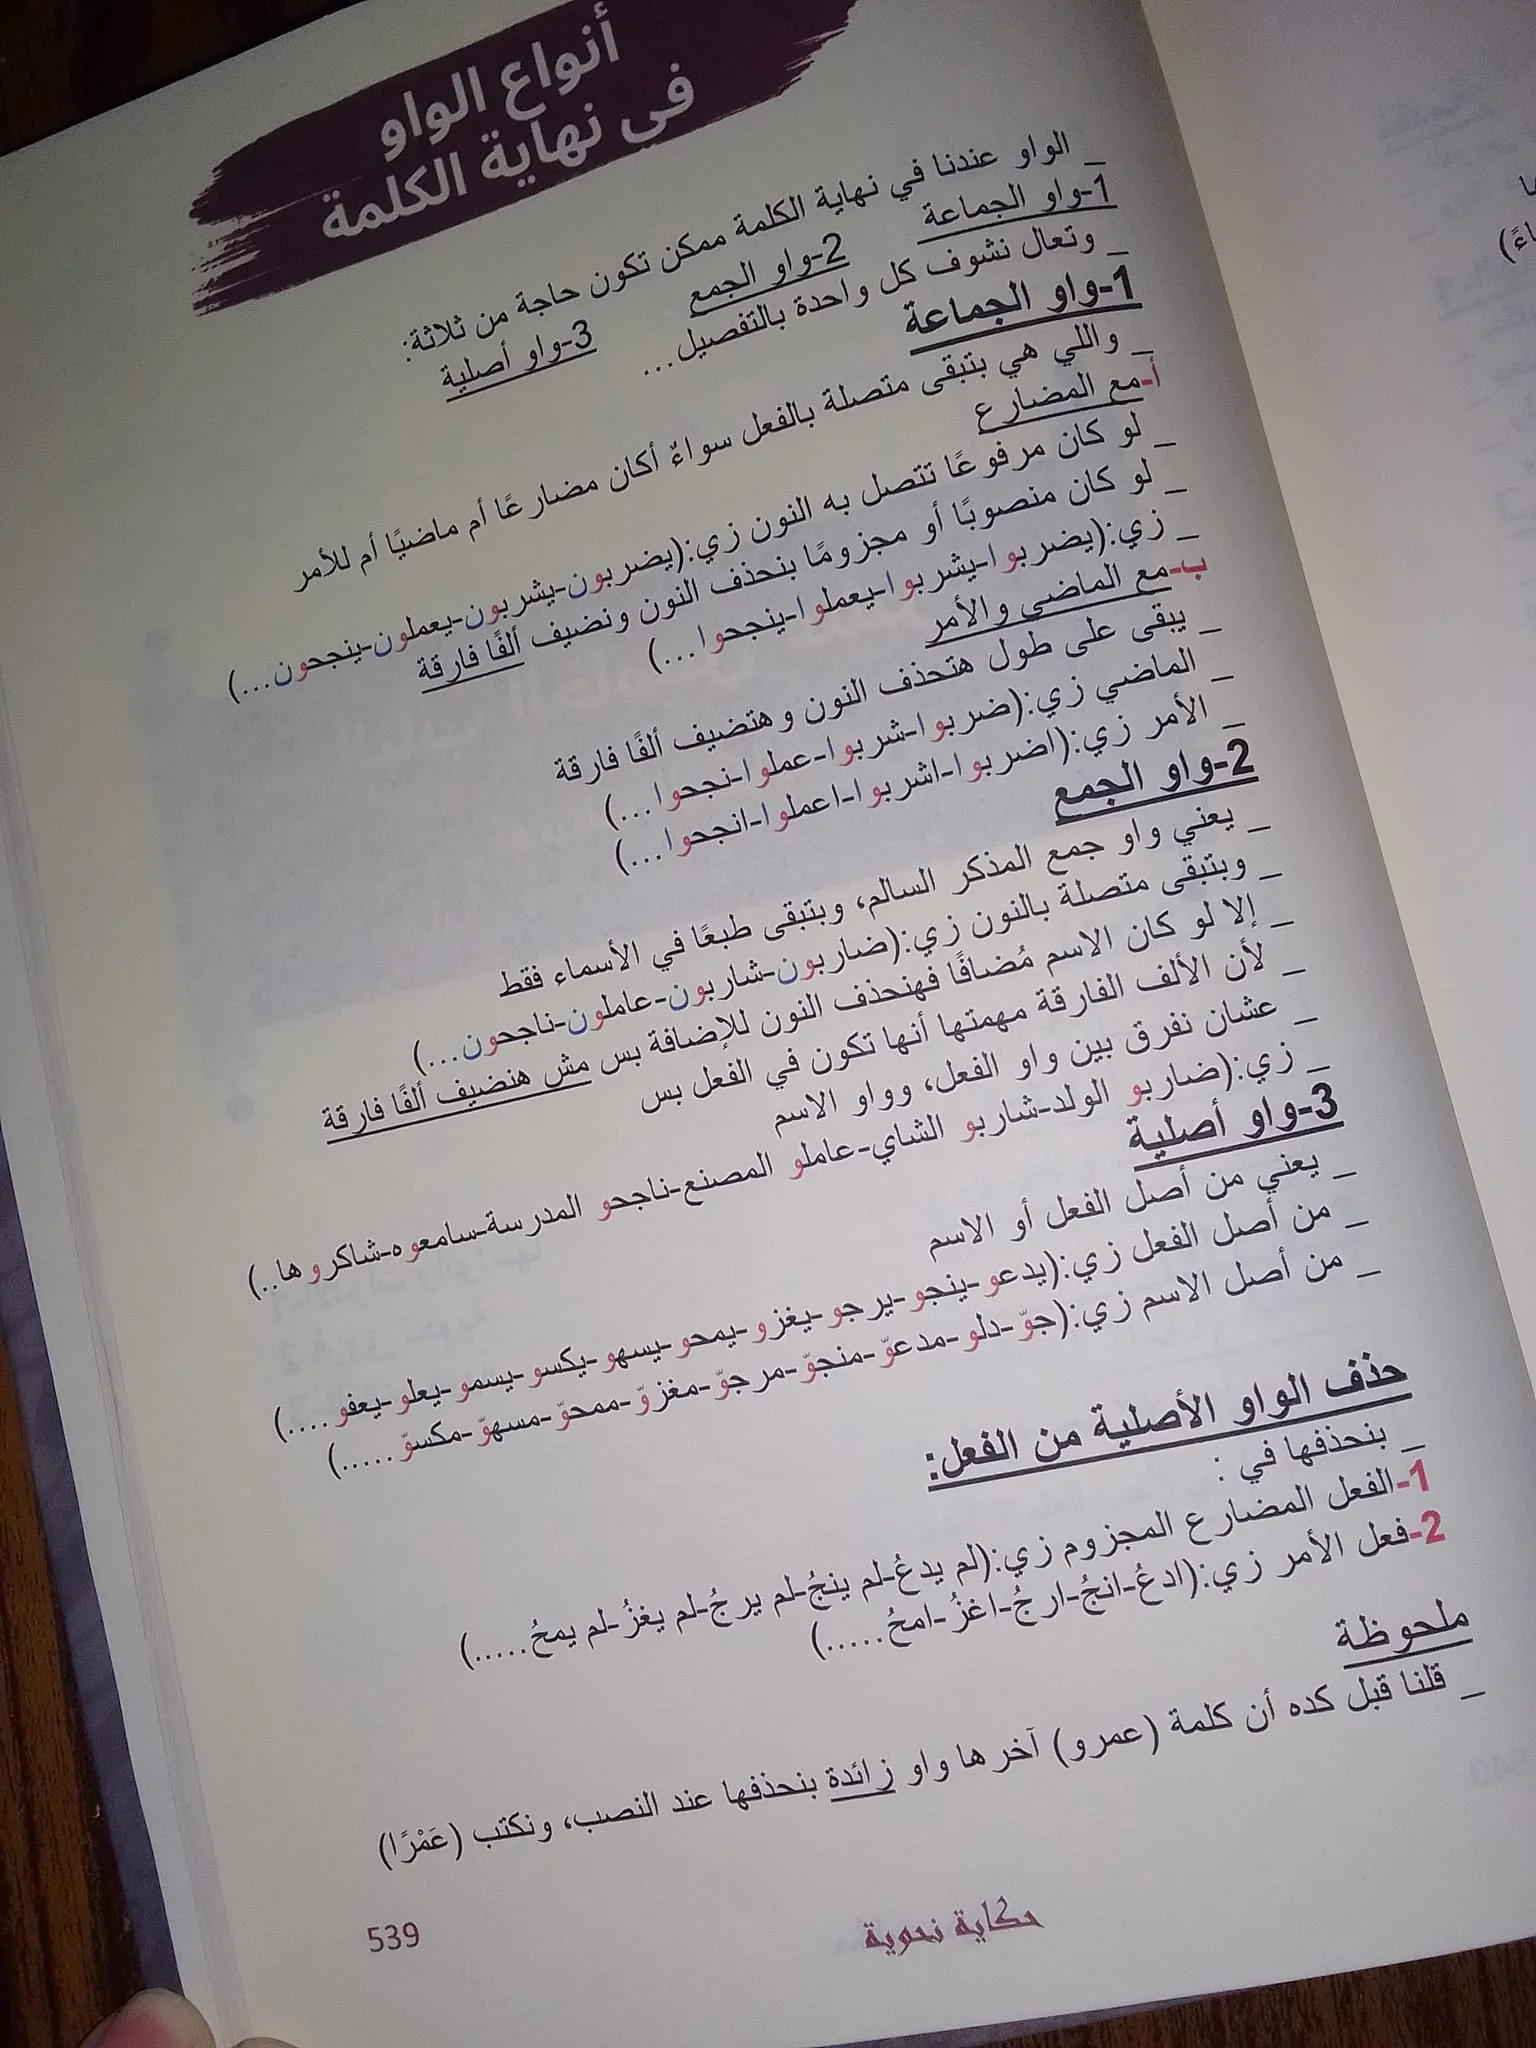 أنواع الواو
في نهاية الكلمة
_ الواو عندنا في نهاية الكلمة ممكن تكون حاجة من ثلاثة:
1-واو الجماعة 2-واو الجمع 3-واو أصلية
_ وتعال نشوف كل واحدة بالتفصيل...
1-واو الجماعة
_ واللي هي بتبقى متصلة بالفعل سواءٌ أكان مضارعًا أم ماضيًا أم للأمر
أ-مع المضارع
_ لو كان مرفوعًا تتصل به النون زي:(يضربون-يشربون-يعملون-ينجحون...)
_ لو كان منصوبًا أو مجزومًا بنحذف النون ونضيف ألفًا فارقة
_ زي:(يضربوا-يشربوا-يعملوا-ينجحوا...)
ب-مع الماضي والأمر
_ يبقى على طول هتحذف النون وهتضيف ألفًا فارقة
_ الماضي زي:(ضربوا-شربوا-عملوا-نجحوا...)
_ الأمر زي:(اضربوا-اشربوا-اعملوا-انجحوا...)
2-واو الجمع
_ يعني واو جمع المذكر السالم، وبتبقى طبعًا في الأسماء فقط
_ وبتبقى متصلة بالنون زي:(ضاربون-شاربون-عاملون-ناجحون...)
_ إلا لو كان الاسم مُضافًا فهنحذف النون للإضافة بس مش هنضيف ألفًا فارقة
_ لأن الألف الفارقة مهمتها أنها تكون في الفعل بس
_ عشان نفرق بين واو الفعل، وواو الاسم
_ زي:(ضاربو الولد-شاربو الشاي-عاملو المصنع-ناجحو المدرسة-سامعوه-شاكروها..)
3-واو أصلية
_ يعني من أصل الفعل أو الاسم
_ من أصل الفعل زي:(يدعو-ينجو-يرجو-يغزو-يمحو-يسهو-يكسو-يسمو-يعلو-يعفو....)
_ من أصل الاسم زي:(جوّ-دلو-مدعوّ-منجوّ-مرجوّ-مغزوّ-ممحوّ-مسهوّ-مكسوّ.....)
حذف الواو الأصلية من الفعل:
_ بنحذفها في :
1-الفعل المضارع المجزوم زي:(لم يدعُ-لم ينجُ-لم يرجُ-لم يغزُ-لم يمحُ.....)
2-فعل الأمر زي:(ادعُ-انجُ-ارجُ-اغزُ-امحُ.....)
ملحوظة
_ قلنا قبل كده أن كلمة (عمرو) آخرها واو زائدة بنحذفها عند النصب، ونكتب (عَمْرًا)
حكاية نحوية
539